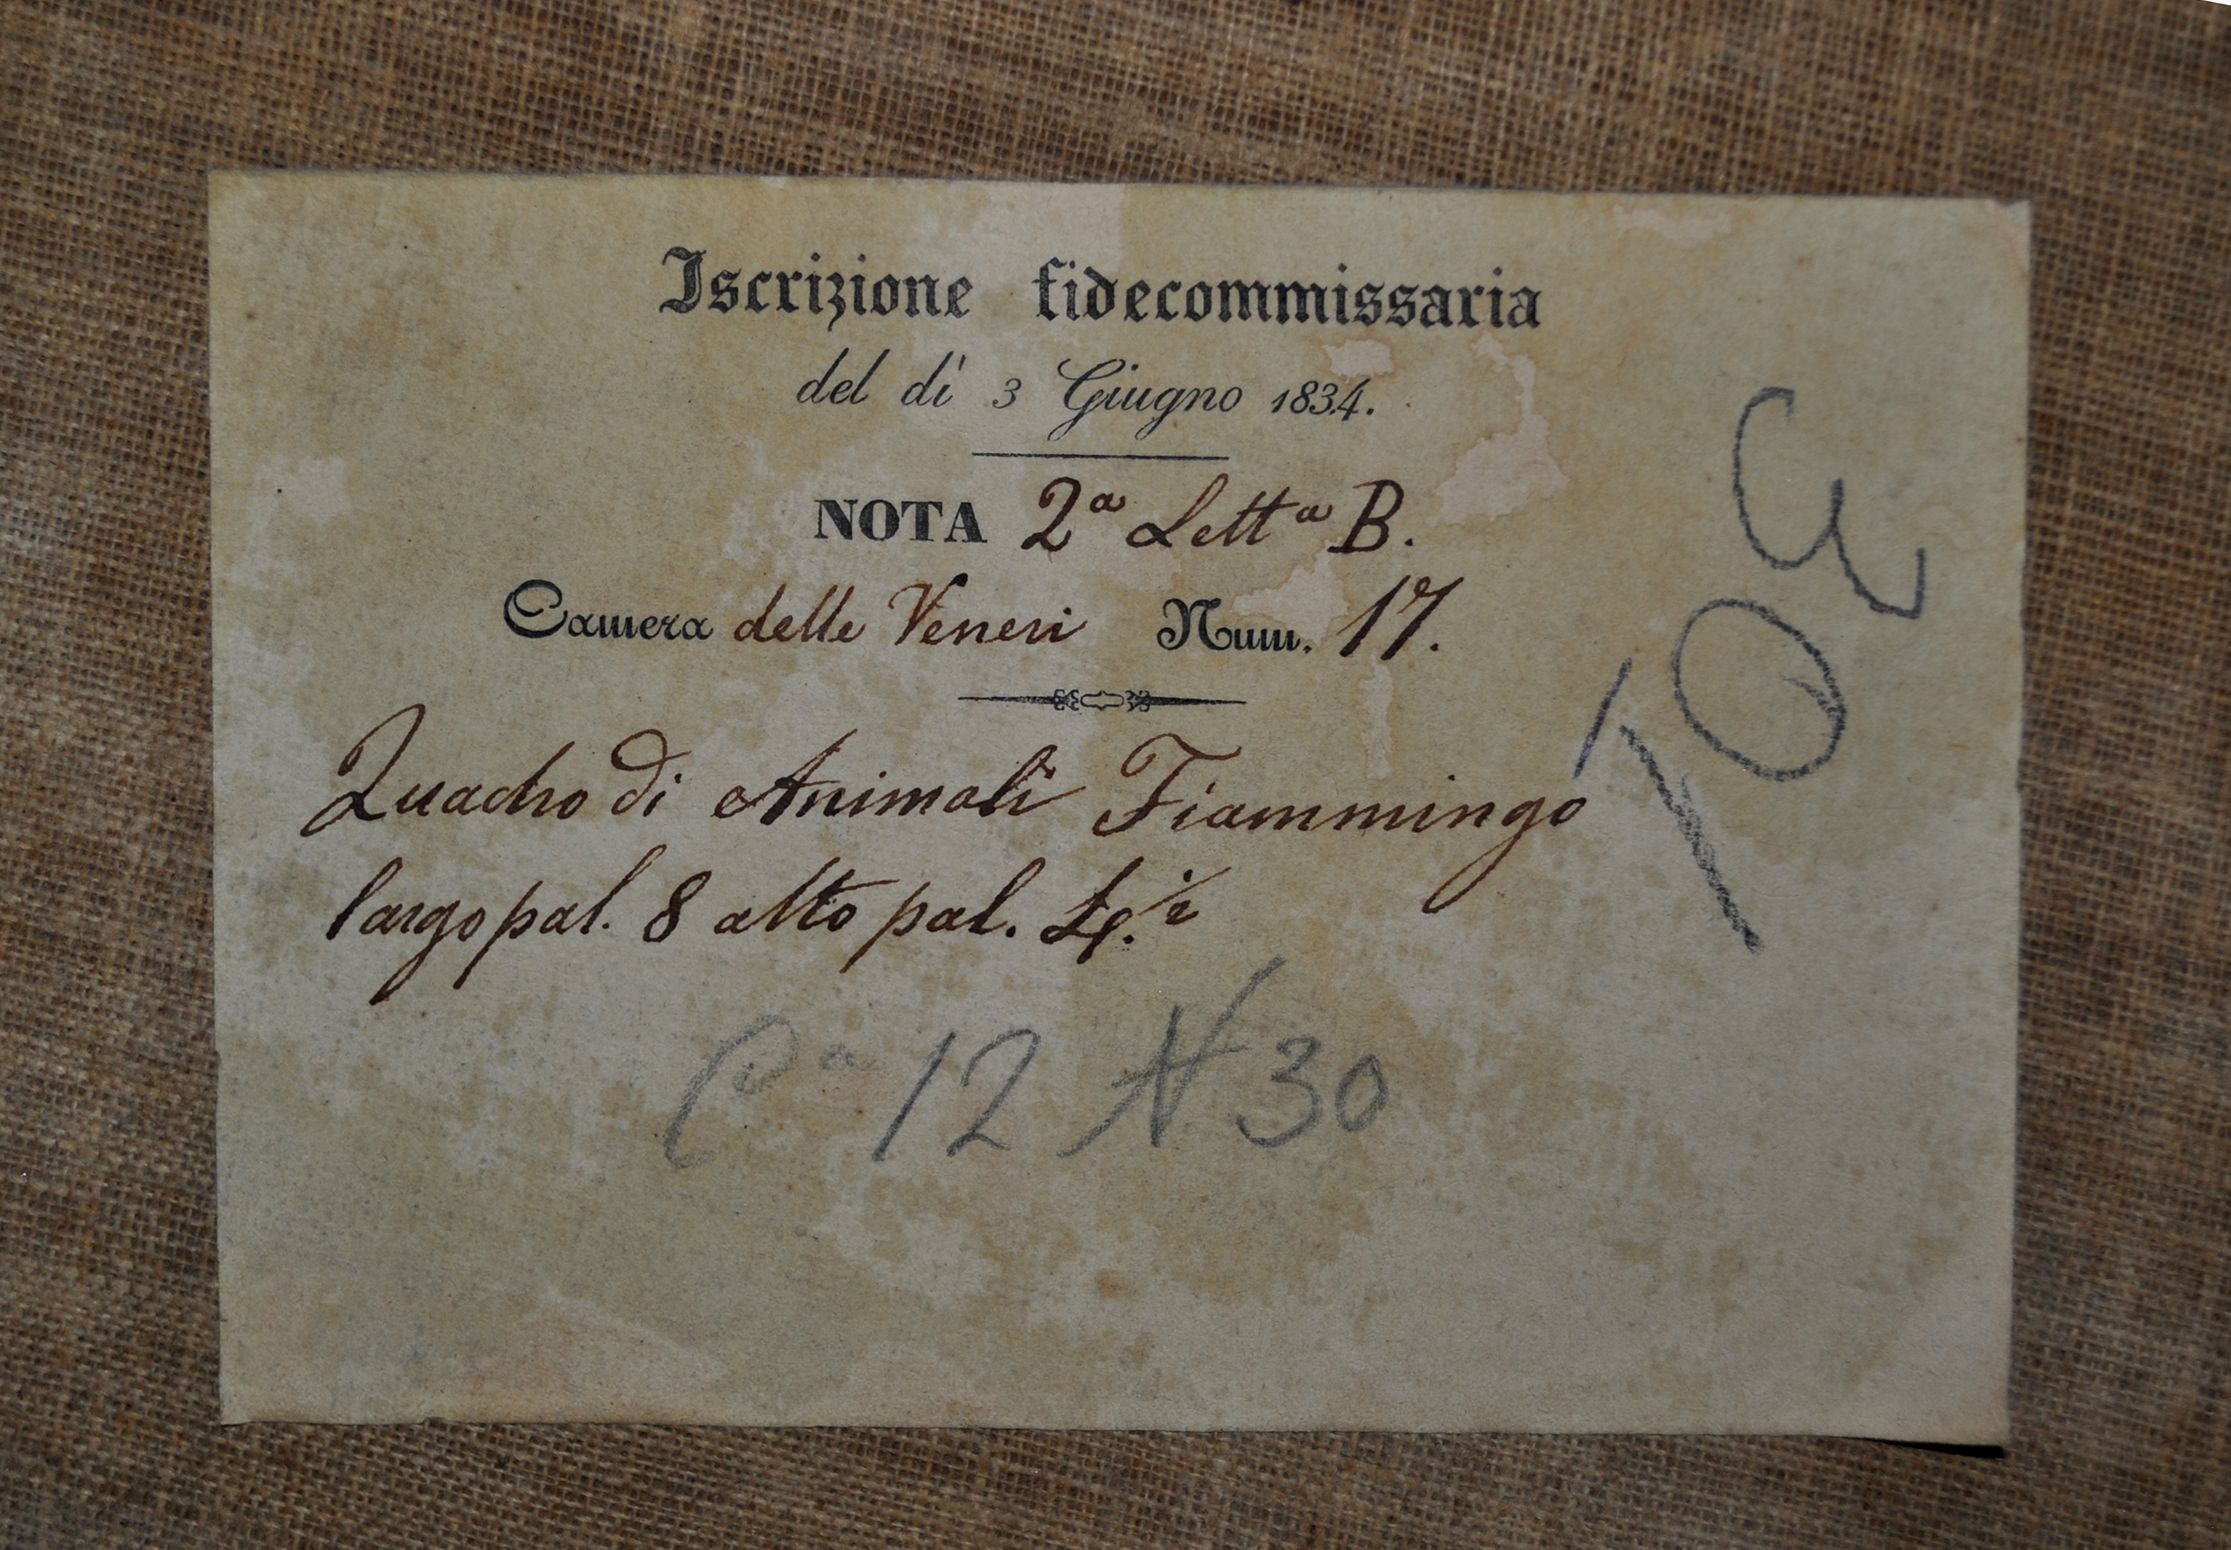 Iscrizione fidecommissaria
del dì 3 Giugno 1834.
NOTA 2ª Lettª B.
Camera delle Veneri Num. 17.
Quadro di Animali Fiammingo
largo pal. 8 alto pal. 4.½
Cª 12 N 30